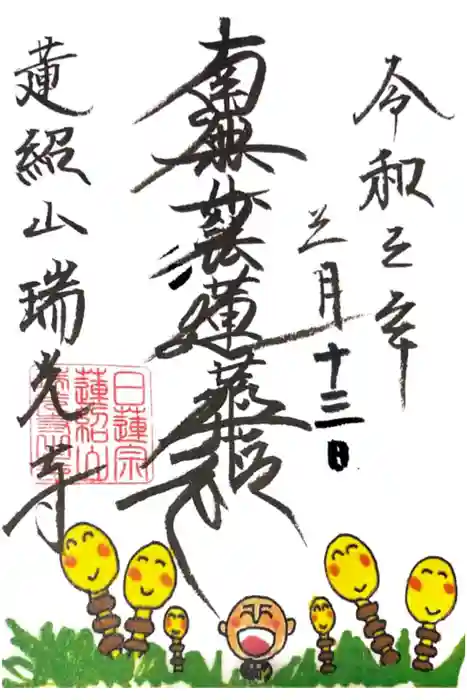 令和三年
三月十三日
南無妙法蓮華経
蓮紹山瑞光寺
日蓮宗
蓮紹山